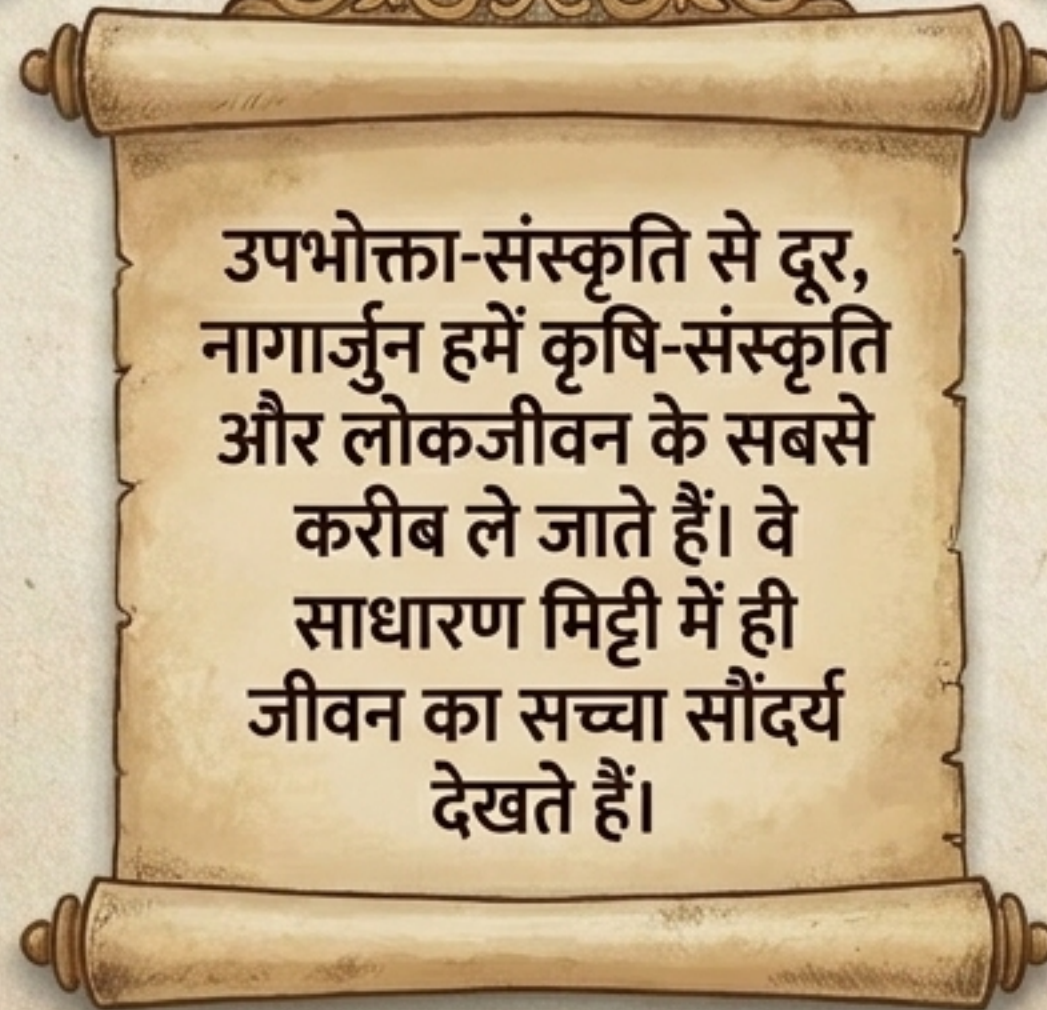 उपभोक्ता-संस्कृति से दूर,
नागार्जुन हमें कृषि-संस्कृति
और लोकजीवन के सबसे
करीब ले जाते हैं। वे
साधारण मिट्टी में ही
जीवन का सच्चा सौंदर्य
देखते हैं।